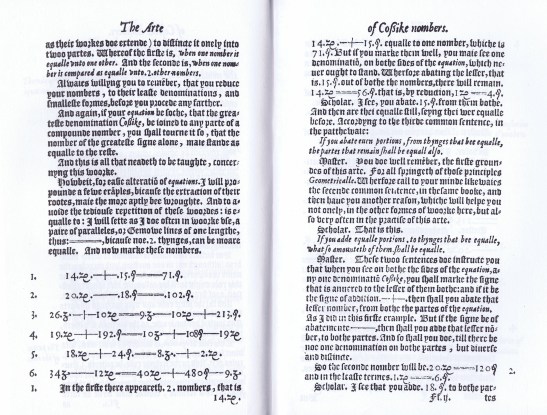 The Arte
as their workes doe extende) to distincte it onely into
twoo partes. Whereof the firste is, when one number is
equalle vnto one other. And the seconde is, when one nom-
ber is compared as equalle vnto .2. other nombers.
Alwaies willyng you to remēber, that you reduce
your nombers , to their leaste denominations , and
smalleste formes, before you procede any farther.
And again, if your equation be soche, that the grea-
teste denomination Coßike, be ioined to any parte of a
compounde nomber , you shall tourne it so , that the
nomber of the greateste signe alone , maie stande as
equalle to the reste.
And this is all that neadeth to be taughte , concer-
nyng this woorke.
Howbeit, for easie alteratiō of equations. I will pro-
pounde a fewe exāples, bicause the extraction of their
rootes, maie the more aptly bee wroughte. And to a-
uoide the tediouse repetition of these woordes : is e-
qualle to : I will sette as I doe often in woorke vse, a
paire of paralleles, or Gemowe lines of one lengthe,
thus: =====, bicause noe .2. thynges, can be moare
equalle. And now marke these nombers.
1. 14.ʒe.—+—.15.ϙ=====71.ϙ.
2. 20.ʒe.———.18.ϙ=====.102.ϙ.
3. 26.ʒ—+—10ʒe=====9.ʒ———10ʒe—+—213.ϙ.
4. 19.ʒe—+—192.ϙ=====10ʒ—+—108ϙ———19ʒe
5. 18.ʒe—+—24.ϙ=====8.ʒ.—+—2.ʒe.
6. 34ʒ———12ʒe=====40ʒe—+—480ϙ———9.ʒ.
1. In the firste there appeareth .2. nombers , that is
14.ʒe.
of Coßike nombers.
14.ʒe.—+—15.ϙ. equalle to one nomber, whiche is
71.ϙ. But if you marke them well, you maie see one
denominatiō, on bothe sides of the equation, which ne-
uer ought to stand. Wherfore abating the lesser, that
is .15.ϙ. out of bothe the nombers, there will remain.
14.ʒe=====56.ϙ. that is, by reduction, 1.ʒe=====4.ϙ.
Scholar. I see, you abate .15.ϙ. from them bothe.
And then are thei equalle still, seyng thei wer equalle
before. Accordyng to the thirde common sentence, in
the patthewaie:
If you abate euen portions, from thynges that bee equalle,
the partes that remain shall be equall also.
Master. You doe well remēber, the firste groun-
des of this arte. For all springeth of those principles
Geometricalle. Wherfore call to your minde likewaies
the seconde common sentence, in thesame booke, and
then haue you another reason, whiche will helpe you
not onely, in the other formes of woorke here, but al-
so very often in the practise of this arte.
Scholar. That is this.
If you adde equalle portions, to thynges that bee equalle,
what so amounteth of them shall be equalle.
Master. These two sentences doe instructe you
that when you see on bothe the sides of the equation, a-
ny one denominatiō Coßike, you shall marke the signe
that is annexed to the lesser of them bothe: and if it be
the signe of addition .—+—. then shall you abate that
lesser nomber, from bothe the partes of the equation.
As I did in this firste example. But if the signe be of
abatemente———, then shall you adde that lesser nō-
ber, to bothe partes. And so shall you doe, till there be
not one denomination on bothe partes , but diuerse
and distincte.
So the seconde nomber will be .20.ʒe=====120ϙ 2.
and in the leaste termes .1.ʒe=====.6.ϙ.
Scholar. I see that you adde .18.ϙ. to bothe par-
Ff.ij. tes